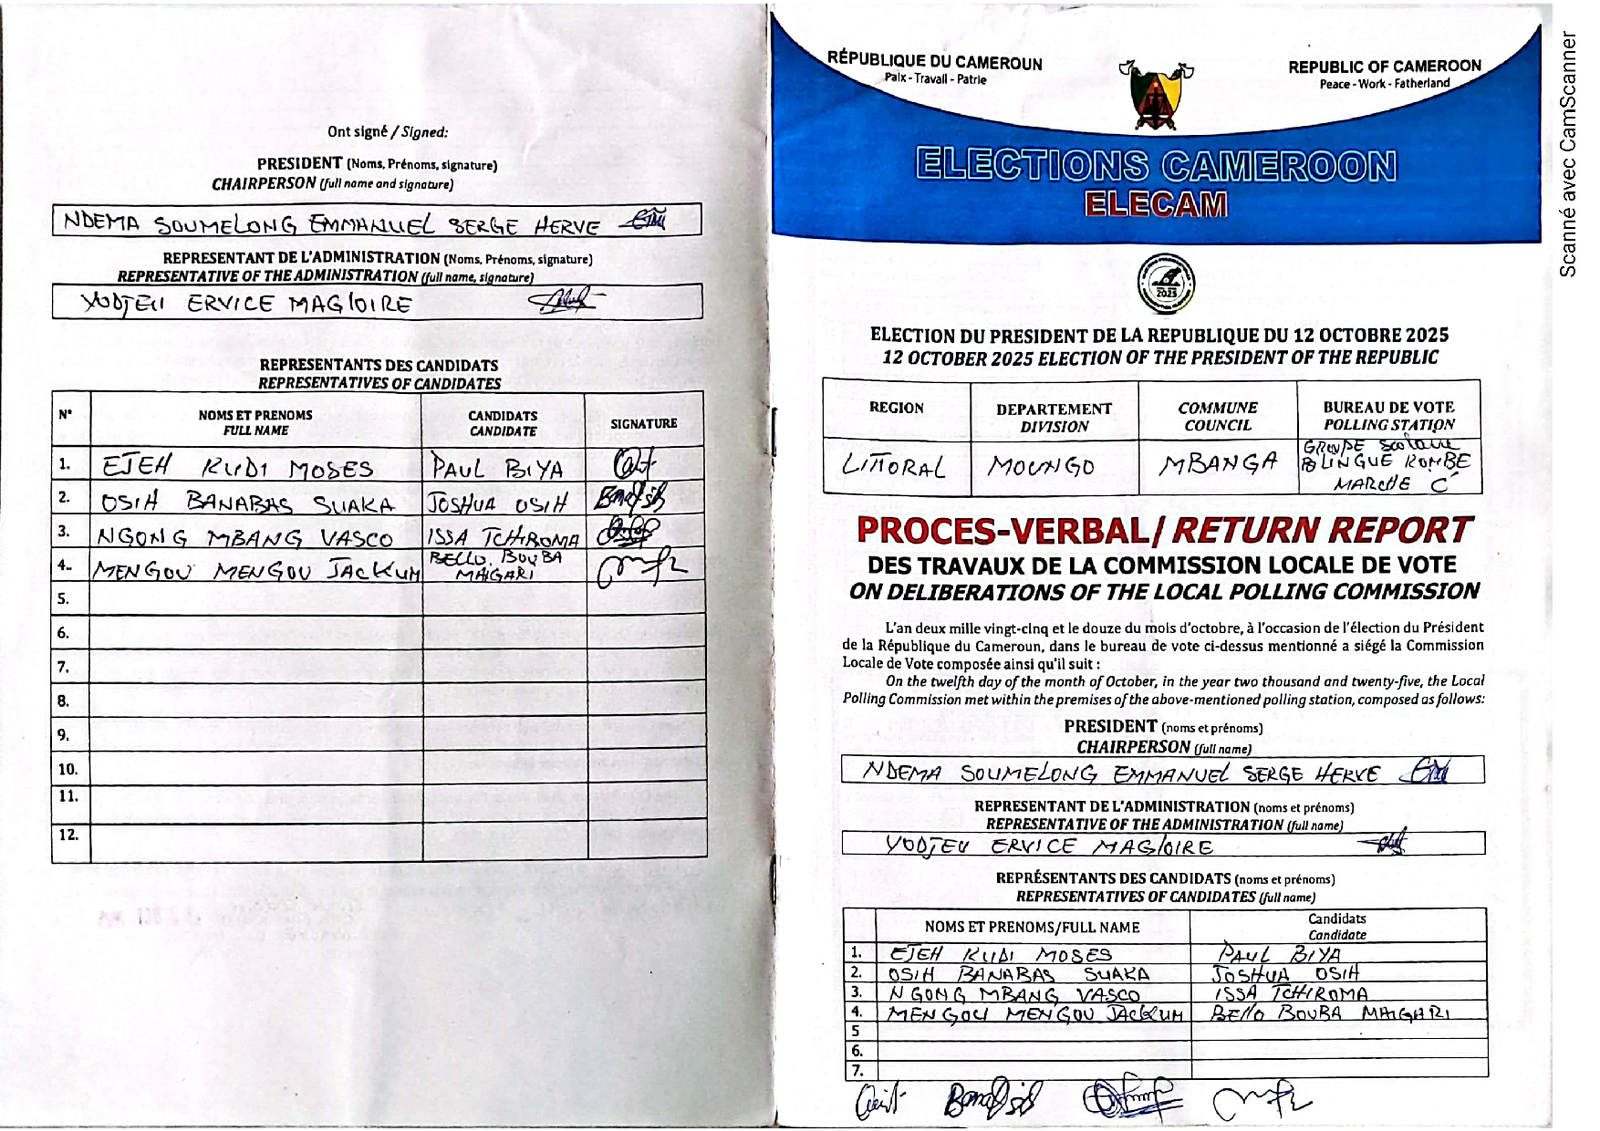 Ont signé / Signed:
PRESIDENT (Noms, Prénoms, signature)
CHAIRPERSON (full name and signature)
NDEMA SOUMELONG EMMANUEL SERGE HERVE
REPRESENTANT DE L'ADMINISTRATION (Noms, Prénoms, signature)
REPRESENTATIVE OF THE ADMINISTRATION (full name, signature)
YODJEU ERVICE MAGLOIRE
REPRESENTANTS DES CANDIDATS
REPRESENTATIVES OF CANDIDATES
N° NOMS ET PRENOMS FULL NAME CANDIDATS CANDIDATE SIGNATURE
1. EJEH KUDI MOSES PAUL BIYA
2. OSIH BANABAS SUAKA JOSHUA OSIH
3. NGONG MBANG VASCO ISSA TCHIROMA
4. MENGOU MENGOU JACKUM BELLO BOUBA MAIGARI
5.
6.
7.
8.
9.
10.
11.
12.
RÉPUBLIQUE DU CAMEROUN
Paix - Travail - Patrie
REPUBLIC OF CAMEROON
Peace - Work - Fatherland
ELECTIONS CAMEROON
ELECAM
2025
ELECTION DU PRESIDENT DE LA REPUBLIQUE DU 12 OCTOBRE 2025
12 OCTOBER 2025 ELECTION OF THE PRESIDENT OF THE REPUBLIC
REGION DEPARTEMENT DIVISION COMMUNE COUNCIL BUREAU DE VOTE POLLING STATION
LITTORAL MOUNGO MBANGA GROUPE SCOLAIRE BILINGUE KOMBE MARCHE C
PROCES-VERBAL/ RETURN REPORT
DES TRAVAUX DE LA COMMISSION LOCALE DE VOTE
ON DELIBERATIONS OF THE LOCAL POLLING COMMISSION
L'an deux mille vingt-cinq et le douze du mois d'octobre, à l'occasion de l'élection du Président
de la République du Cameroun, dans le bureau de vote ci-dessus mentionné a siégé la Commission
Locale de Vote composée ainsi qu'il suit :
On the twelfth day of the month of October, in the year two thousand and twenty-five, the Local
Polling Commission met within the premises of the above-mentioned polling station, composed as follows:
PRESIDENT (noms et prénoms)
CHAIRPERSON (full name)
NDEMA SOUMELONG EMMANUEL SERGE HERVE
REPRESENTANT DE L'ADMINISTRATION (noms et prénoms)
REPRESENTATIVE OF THE ADMINISTRATION (full name)
YODJEU ERVICE MAGLOIRE
REPRÉSENTANTS DES CANDIDATS (noms et prénoms)
REPRESENTATIVES OF CANDIDATES (full name)
NOMS ET PRENOMS/FULL NAME Candidats Candidate
1. EJEH KUDI MOSES PAUL BIYA
2. OSIH BANABAS SUAKA JOSHUA OSIH
3. NGONG MBANG VASCO ISSA TCHIROMA
4. MENGOU MENGOU JACKUM BELLO BOUBA MAIGARI
5
6.
7.
Scanné avec CamScanner